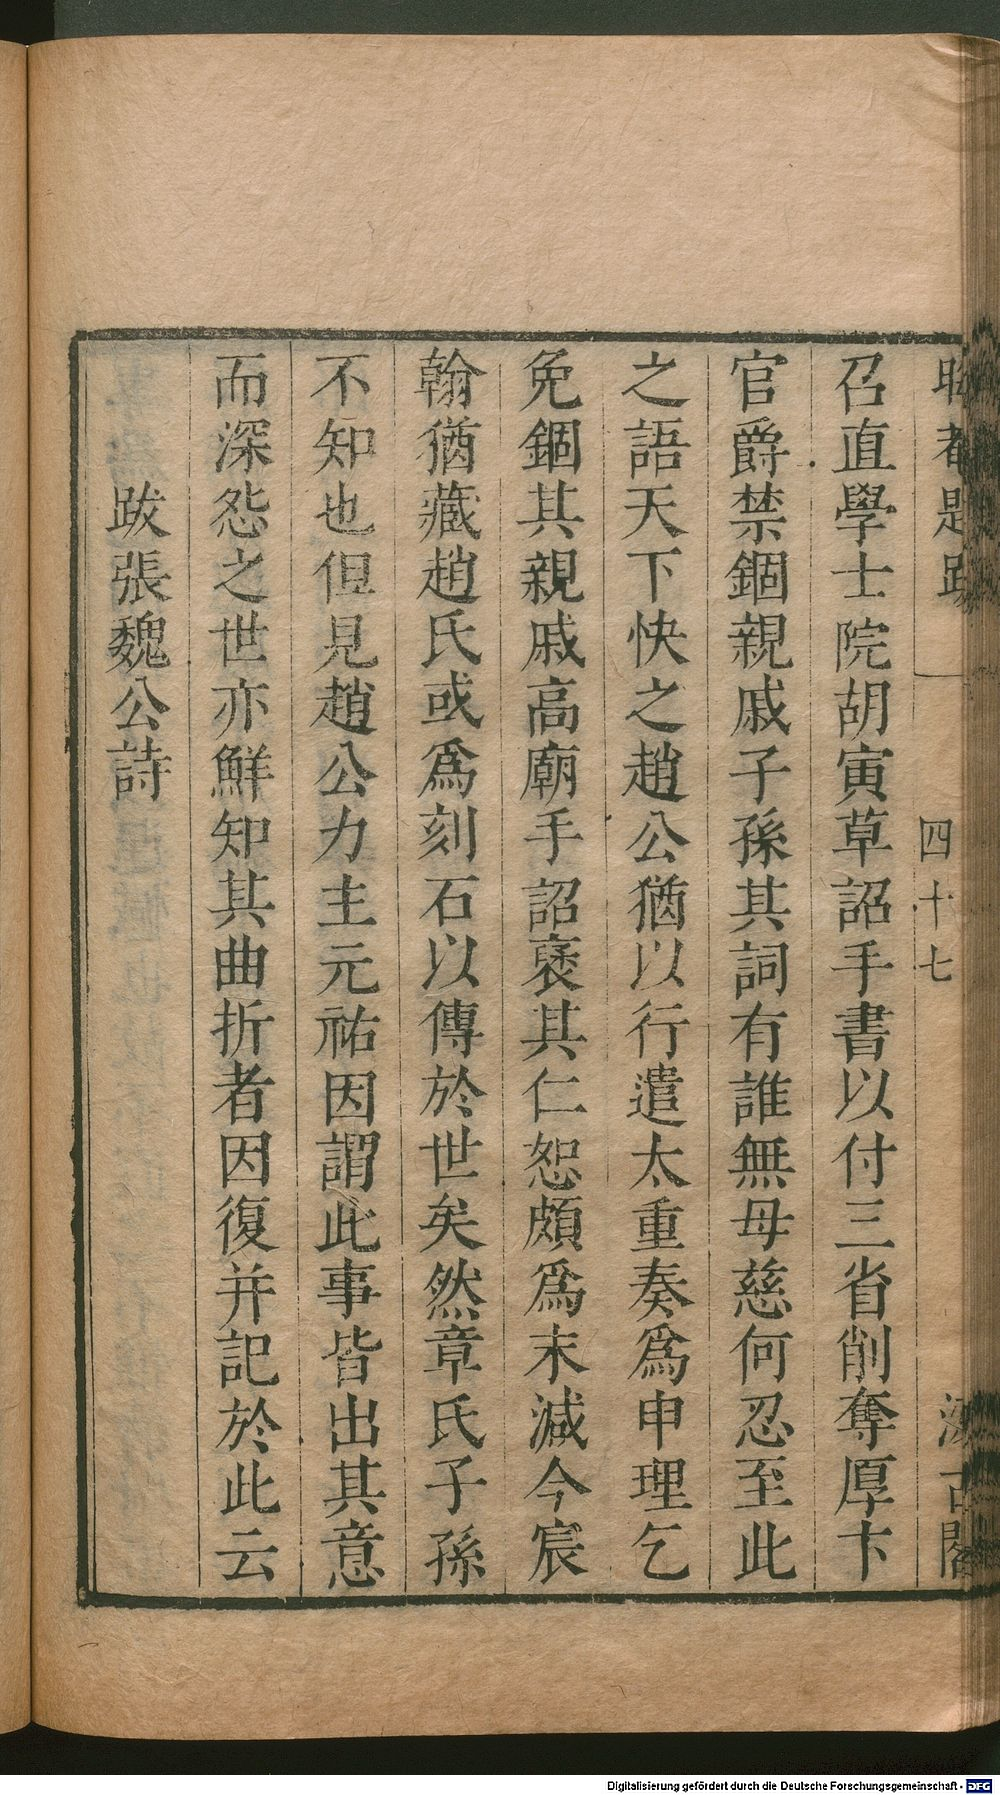 題跋
四十七
古閣
召直學士院胡寅草詔手書以付三省削奪厚卞
官爵禁錮親戚子孫其詞有誰無母慈何忍至此
之語天下快之趙公猶以行遣太重奏爲申理乞
免錮其親戚高廟手詔褒其仁恕頗爲末減今宸
翰猶藏趙氏或爲刻石以傳於世矣然章氏子孫
不知也但見趙公力主元祐因謂此事皆出其意
而深怨之世亦鮮知其曲折者因復并記於此云
跋張魏公詩
Digitalisierung gefördert durch die Deutsche Forschungsgemeinschaft - DFG